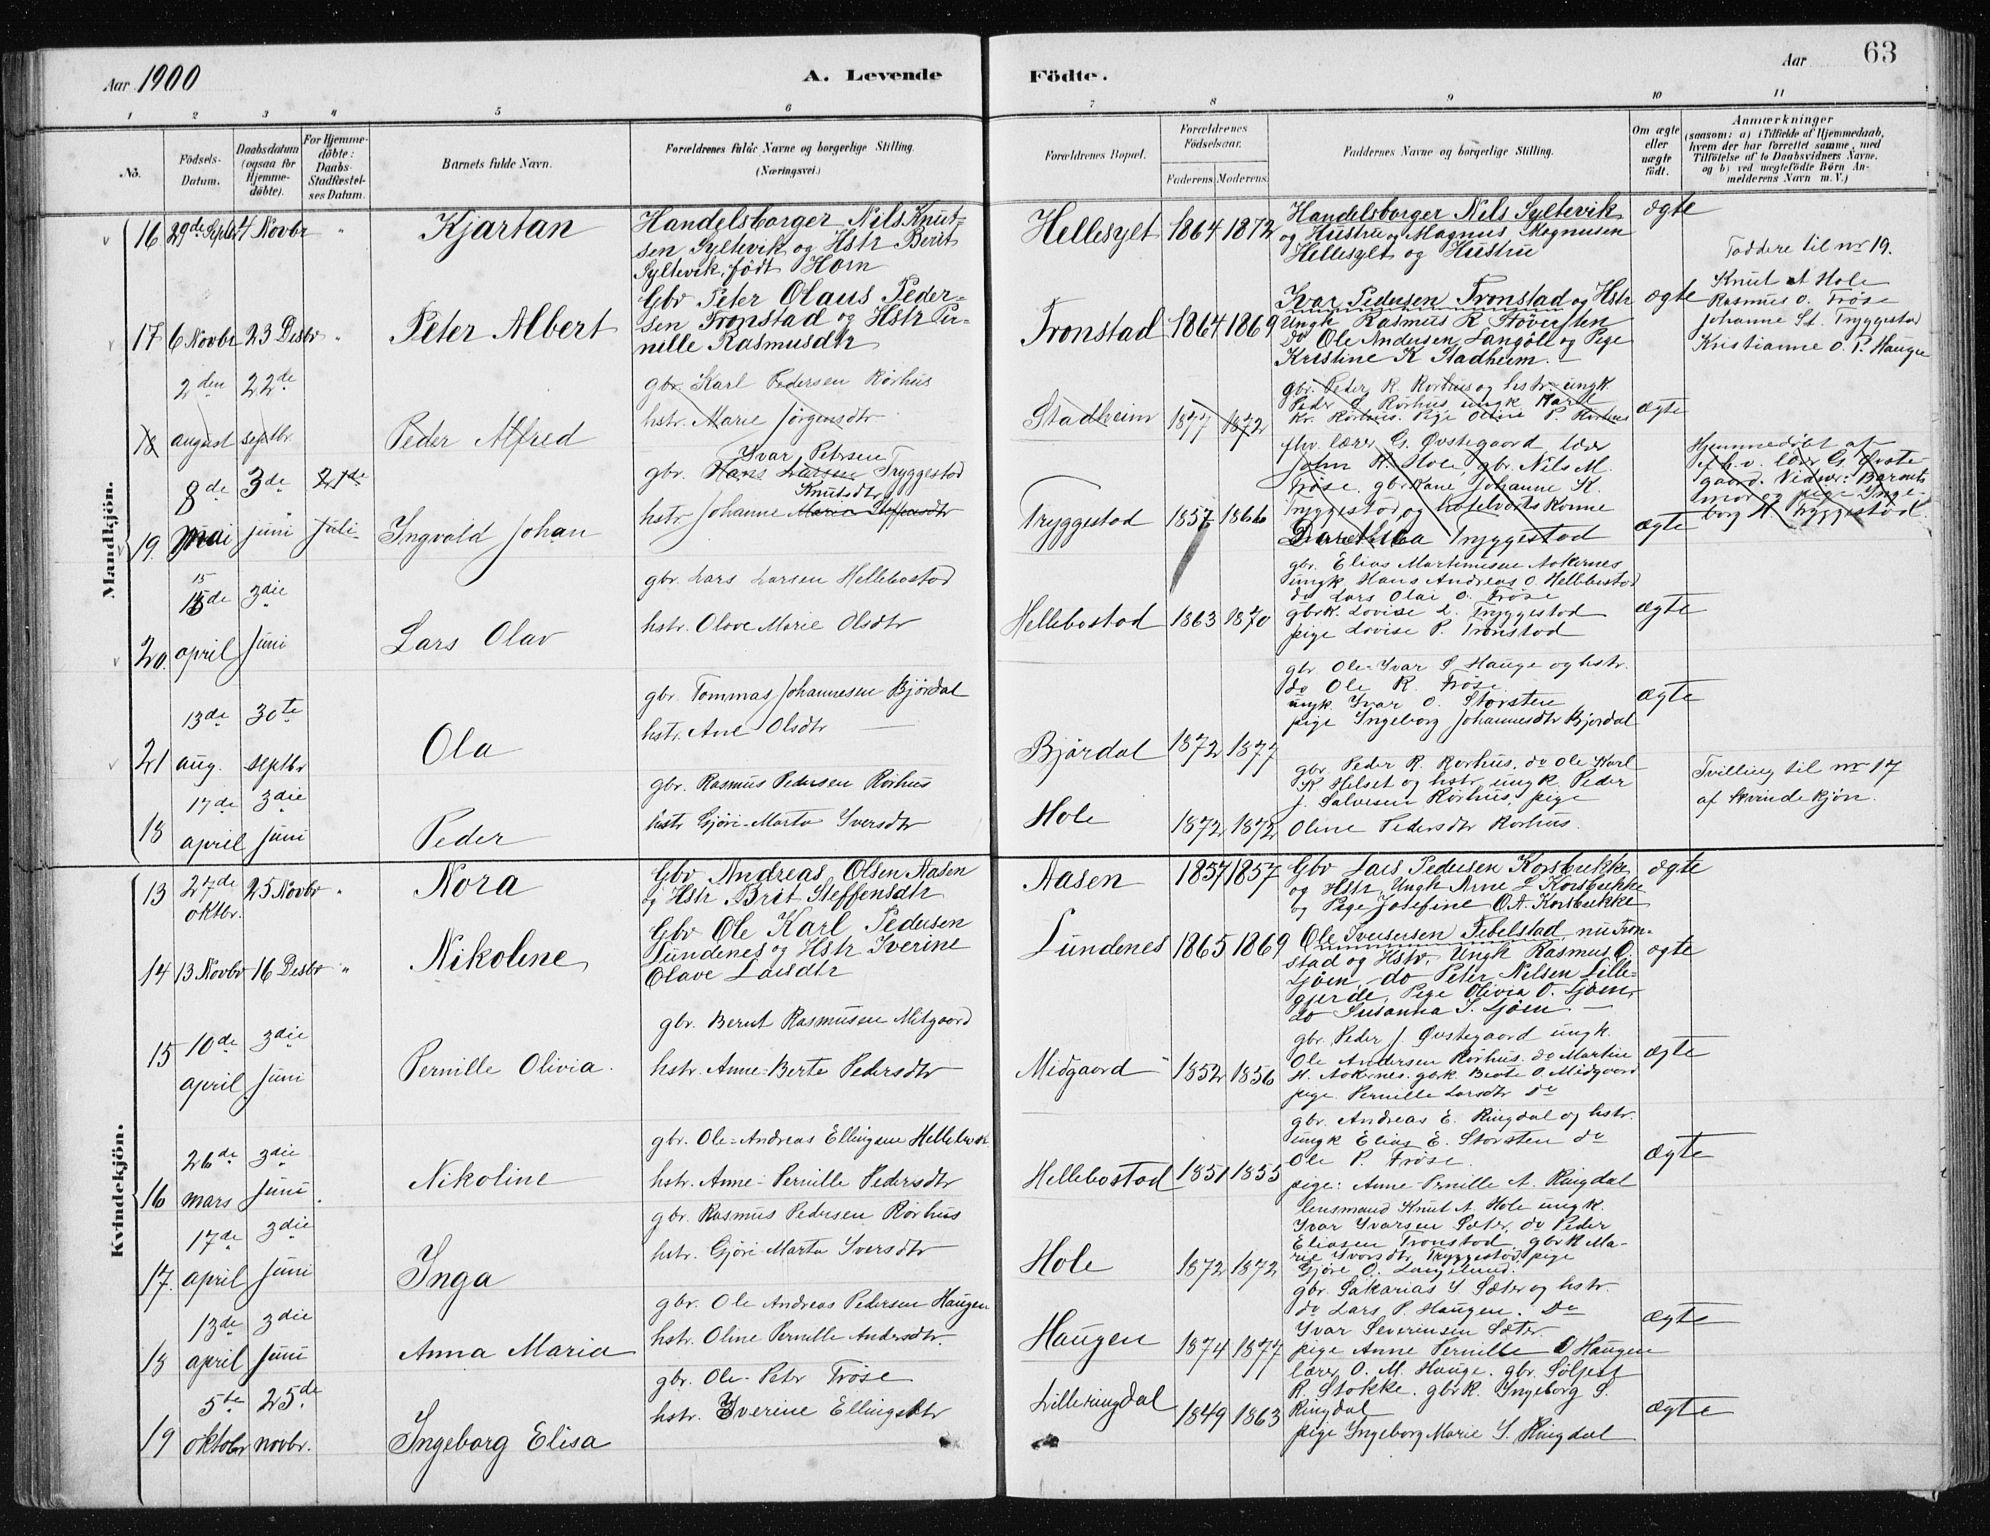 Aar 1900
A. Levende
Födte.
Aar
63
1 2 3 4 5 6 7 8 9 10 11
No.
Födsels-
Datum.
Daabsdatum
(ogsaa for
Hjemme-
döbte).
For Hjemme-
döbte:
Daabs-
Stadfæstel-
ses Datum.
Barnets fulde Navn.
Forældrenes fulde Navne og borgerlige Stilling.
(Næringsvei.)
Forældrenes Bopæl.
Forældrenes
Födselsaar.
Faderens. Moderens.
Faddernes Navne og borgerlige Stilling.
Om ægte
eller
uægte
födt.
Anmærkninger
(saasom: a) i Tilfælde af Hjemmedaab,
hvem der har forrettet samme, med
Tilföielse af to Daabsvidners Navne,
og b) ved uægtefödte Börn An-
melderens Navn m. V.)
Mandkjön.
16 29de Septr 4 Novbr " Kjartan
Handelsborger Nils Knut-
sen Syltevik og Hstr Berit
Syltevik, födt Horn
Hellesylt 1864 1872
Handelsborger Nils Syltevik
og Hustru og Magnus Magnusen
Hellesylt og Hustru
ægte
Faddere til nr 19.
Knut A Hole
Rasmus O. Fröse
Johanne St. Tryggestad
Kristianne O. P. Hauge
17 6 Novbr 23 Desbr " Peter Albert
Gbr Peter Olaus Peder-
sen Tronstad og Hstr Per-
nille Rasmusdtr
Tronstad 1864 1869
Ivar Pedersen Tronstad og Hstr
Ungk Rasmus R Stöversten
do Ole Andersen Langöll og Pige
Kristine K Stadheim.
ægte
18 2den august 22de septbr. Peder Alfred
gbr. Karl Pedersen Rörhus
hstr. Marie Jörgensdtr
Stadheim 1877 1872
gbr. Peder R. Rörhus og hstr. ungk.
Kr. Rörhus. Pige Oline P. Rörhus
ægte
19. 8de mai 3de juni 21de Juli Ingvald Johan
Ivar Petersen
gbr. Hans Larsen Tryggestad
Knutsdtr
hstr. Johanne Maria Steffensdtr
Tryggestad 1857 1866
fhv. lærer G. Øvstegaard lærer
John K. Hole gbr. Nils M.
Fröse. gbrkone Johanne K.
Tryggestad og
Tryggestad
ægte
Hjemmedöbt af
f.h.v. lærer G. Øvste-
gaard. Vidner: Barnets
mor og pige Inge-
borg A Tryggestad.
20. 15de april 3die Juni Lars Olav
gbr. Lars Larsen Hellebostad
hstr. Olave Marie Olsdtr
Hellebostad 1863 1870
gbr. Elias Martinusen Aakernes
ungk. Hans Andreas O. Hellebostad
do Lars Olai O. Fröse
gbrk. Lovise L. Tryggestad
pige Lovise P. Tronstad
ægte
21 13de aug. 30te septbr Ola
gbr. Tommas Johannesen Björdal
hstr. Ane Olsdtr
Björdal 1872 1877
gbr. Ole-Ivar S. Hauge og hstr.
do Ole R. Fröse
ungk. Ivar O. Storsten
pige Ingeborg Johannesdtr Björdal
ægte
18 17de april 3die Juni Peder
gbr. Rasmus Pedersen Rörhus
hstr Gjöri-Marta Iversdtr
Hole 1872 1872
gbr. Peder R. Rörhus. do Ole Karl
K. Helset og hstr. ungk. Peder
J. Salvesen Rörhus, pige
Oline Pedersdtr Rörhus.
Tvilling til nr 17
af kvindekjön.
Kvindekjön.
13 27de oktbr. 25 Novbr " Nora
Gbr Andreas Olsen Aasen
og Hstr Brit Steffensdtr
Aasen 1857 1857
Gbr Lars Pedersen Korsbrekke
og Hstr, Ungk Arne L Korsbrekke
og Pige Josefine O.A. Korsbrekke
ægte
14 13 Novbr 16 Desbr " Nikoline
Gbr Ole Karl Pedersen
Lundenes og Hstr Iverine
Olave Larsdtr
Lundenes 1865 1869
Ole Iversersen Tibelstad, nu Tron-
stad og Hstr, Ungk Rasmus O.
Ljöen, do Peter Nilsen Lille-
gjerde, Pige Olivia O. Ljöen,
do Susanna S. Ljöen
ægte
15 10de april 3die Juni Pernille Olivia.
gbr. Bernt Rasmusen Mitgaard
hstr. Anne-Berte Pedersdtr
Midgaard 1852 1856
gbr. Peder J. Øvstegaard ungk.
Ole Andersen Rörhus. do Martin
H. Aakernes. gbrk. Beate O Midgaard
pige. Pernille Larsdtr do
ægte
16 26de mars 3die Juni. Nikoline
gbr. Ole-Andreas Ellingsen Hellebost.
hstr. Anne-Pernille Pedersdtr
Hellebostad 1851 1855
gbr. Andreas E. Ringdal og hstr.
ungk Elias E. Storsten do
Ole P. Fröse.
pige: Anne Pernille A. Ringdal
ægte
17. 17de april 3die Juni Inga
gbr. Rasmus Pedersen Rörhus
hstr. Gjöri Marta Iversdtr
Hole 1872 1872
lensmand Knut A Hole ungk.
Ivar Ivarsen Sæter, do Peder
Eliasen Tronstad, gbrk Ma-
rie Ivarsdtr Tryggestad, pige
Gjöre O. Langelund.
18 13de april 3die Juni Anna Maria
gbr. Ole Andreas Pedersen Haugen
hstr. Oline Pernille Andersdtr.
Haugen 1874 1877
gbr. Sakarias I Sæter og hstr.
do Lars P. Haugen. Do
Ivar Severinsen Sæter.
pige Anne Pernille O Haugen
ægte
19 5te oktobr 25de novbr. Ingeborg Elisa
gbr. Ole-Peter Fröse
hstr. Iverine Ellingsdtr
Lilleringdal 1849 1863
lærer O. M. Hauge. gbr. Sölfest
R. Stokke. gbrk. Ingeborg S.
Ringdal
pige Ingeborg Marie S. Ringdal
ægte